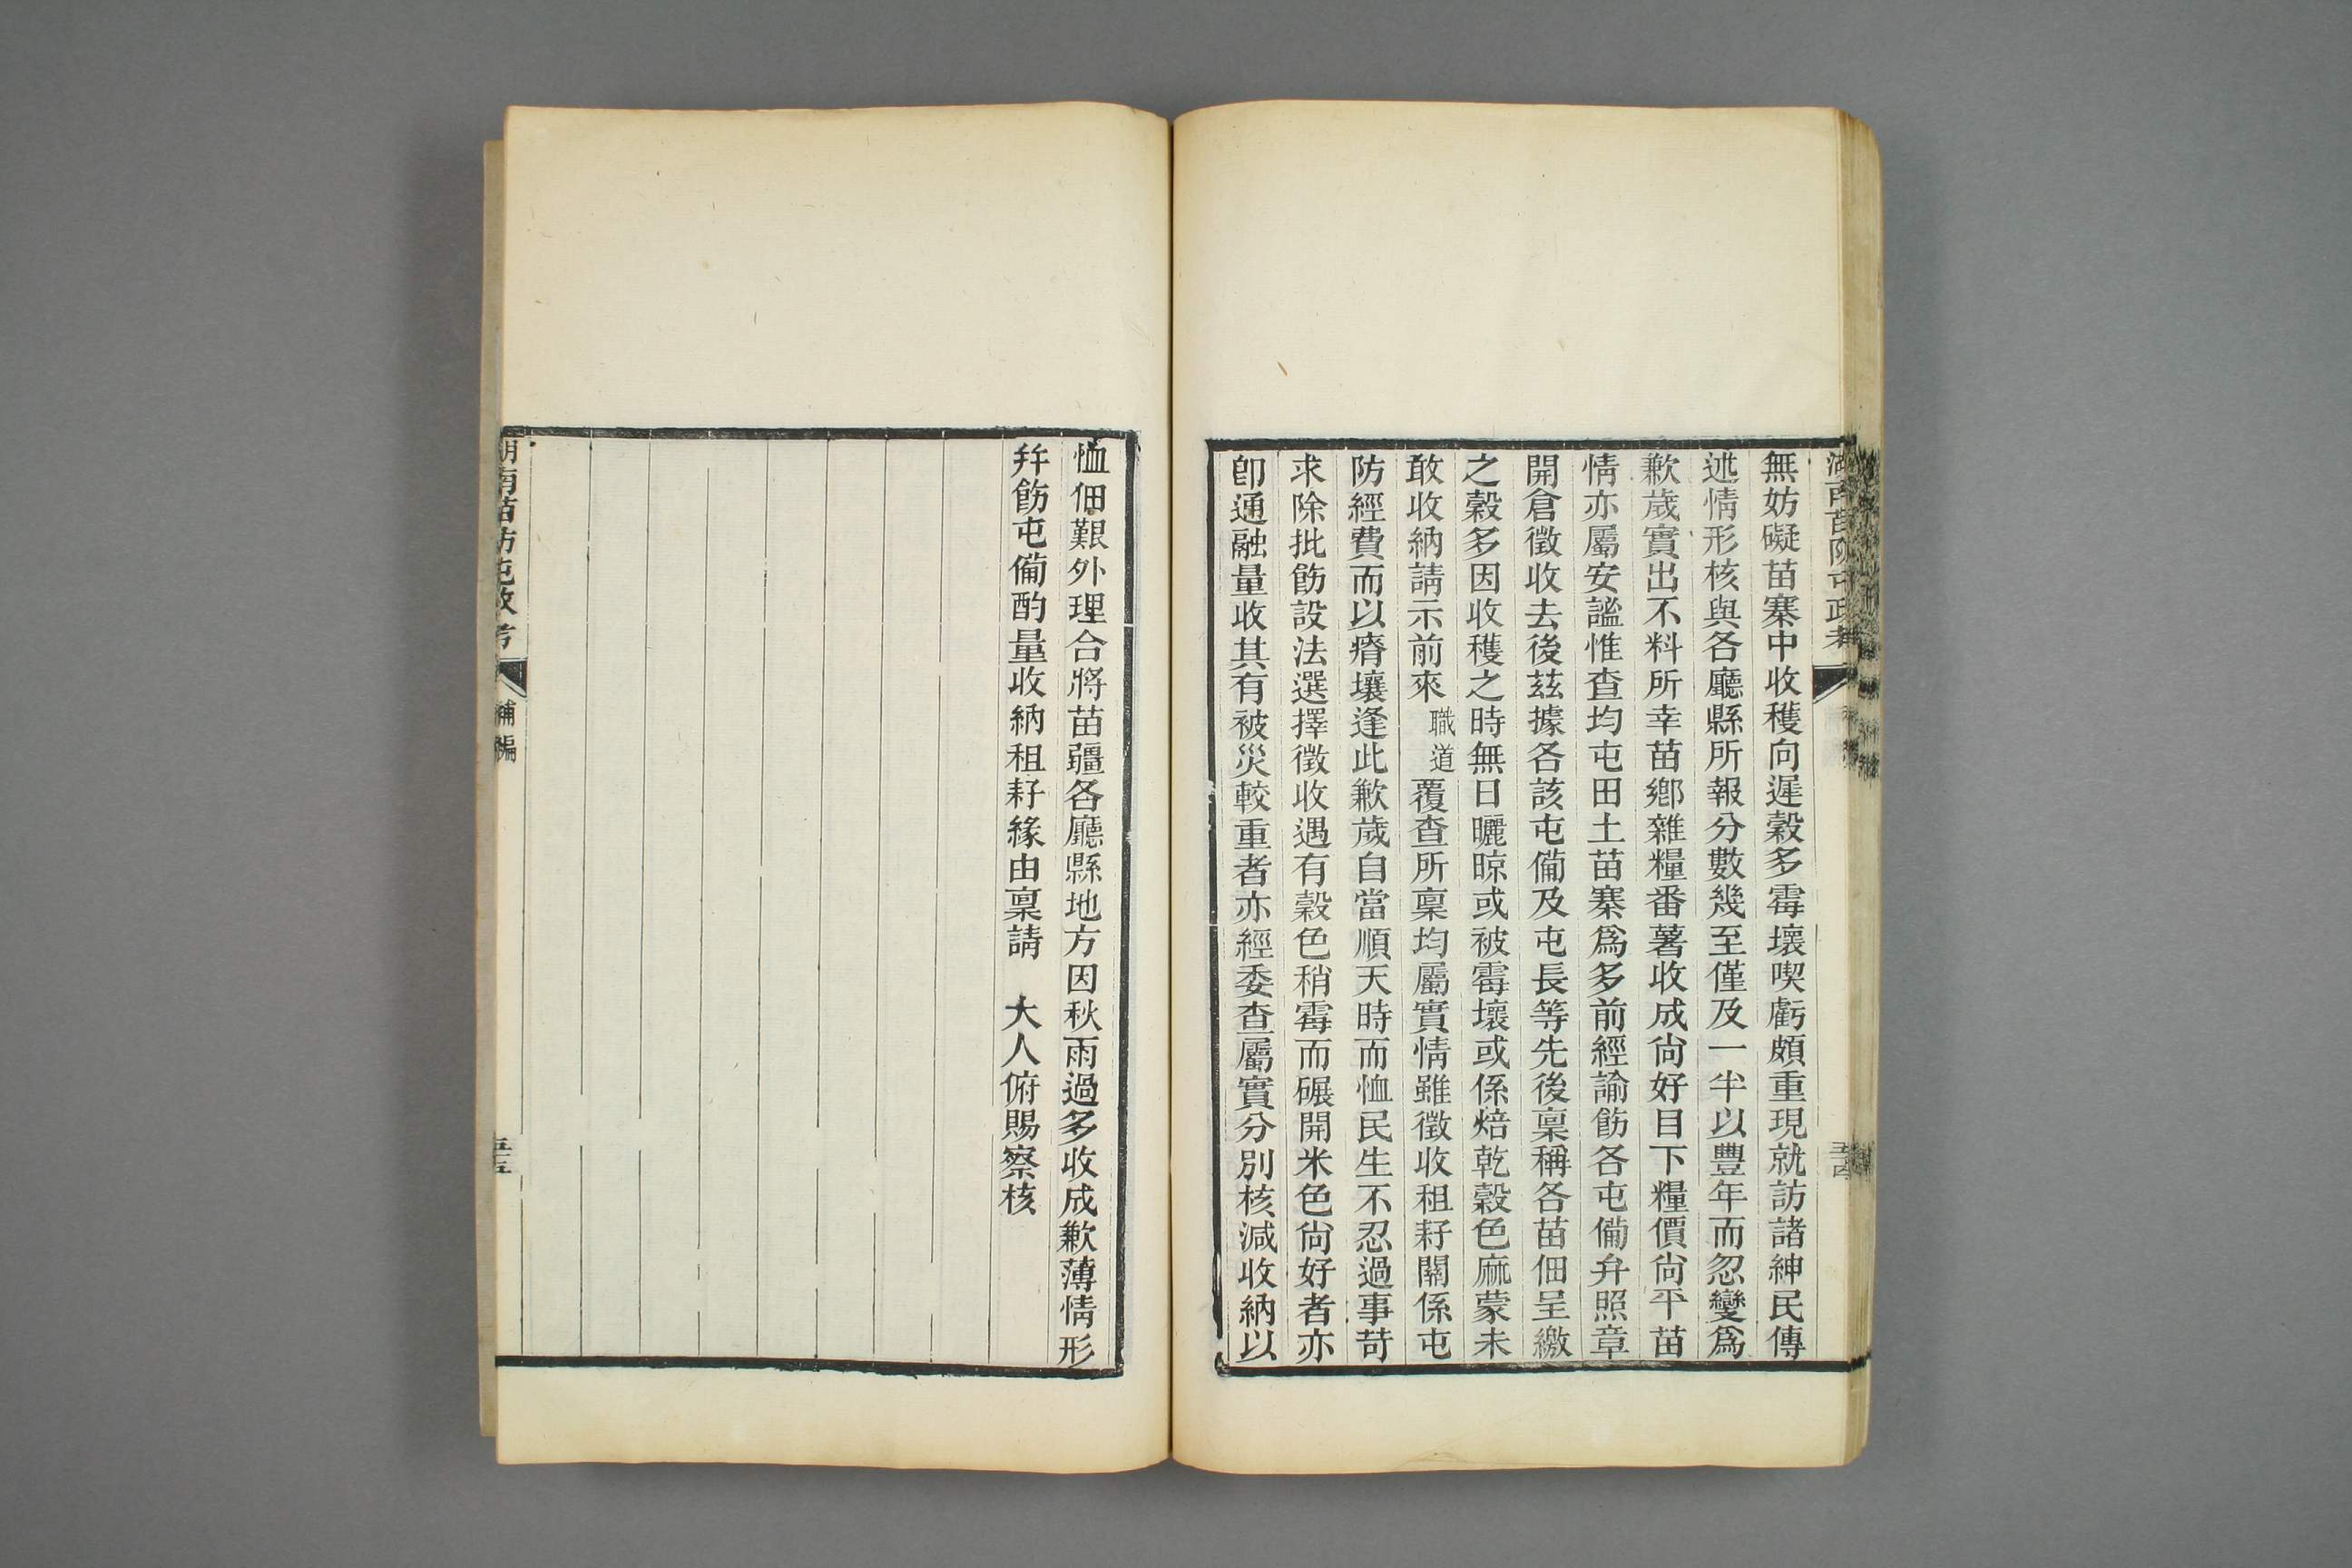 無妨礙苗寨中收穫向遲穀多霉壞喫虧頗重現就訪諸紳民傳
述情形核與各廳縣所報分數幾至僅及一半以豐年而忽變爲
歉歲實出不料所幸苗鄉雜糧番薯收成尙好目下糧價尙平苗
情亦屬安謐惟查均屯田土苗寨爲多前經諭飭各屯備弁照章
開倉徵收去後茲據各該屯備及屯長等先後稟稱各苗佃呈繳
之穀多因收穫之時無日曬晾或被霉壞或係焙乾穀色麻蒙未
敢收納請示前來職道覆查所稟均屬實情雖徵收租籽關係屯
防經費而以瘠壤逢此歉歲自當順天時而恤民生不忍過事苛
求除批飭設法選擇徵收遇有穀色稍霉而碾開米色尙好者亦
卽通融量收其有被災較重者亦經委查屬實分別核減收納以
恤佃艱外理合將苗疆各廳縣地方因秋雨過多收成歉薄情形
幷飭屯備酌量收納租籽緣由稟請　大人俯賜察核
湖南苗防屯政考
補編
五五